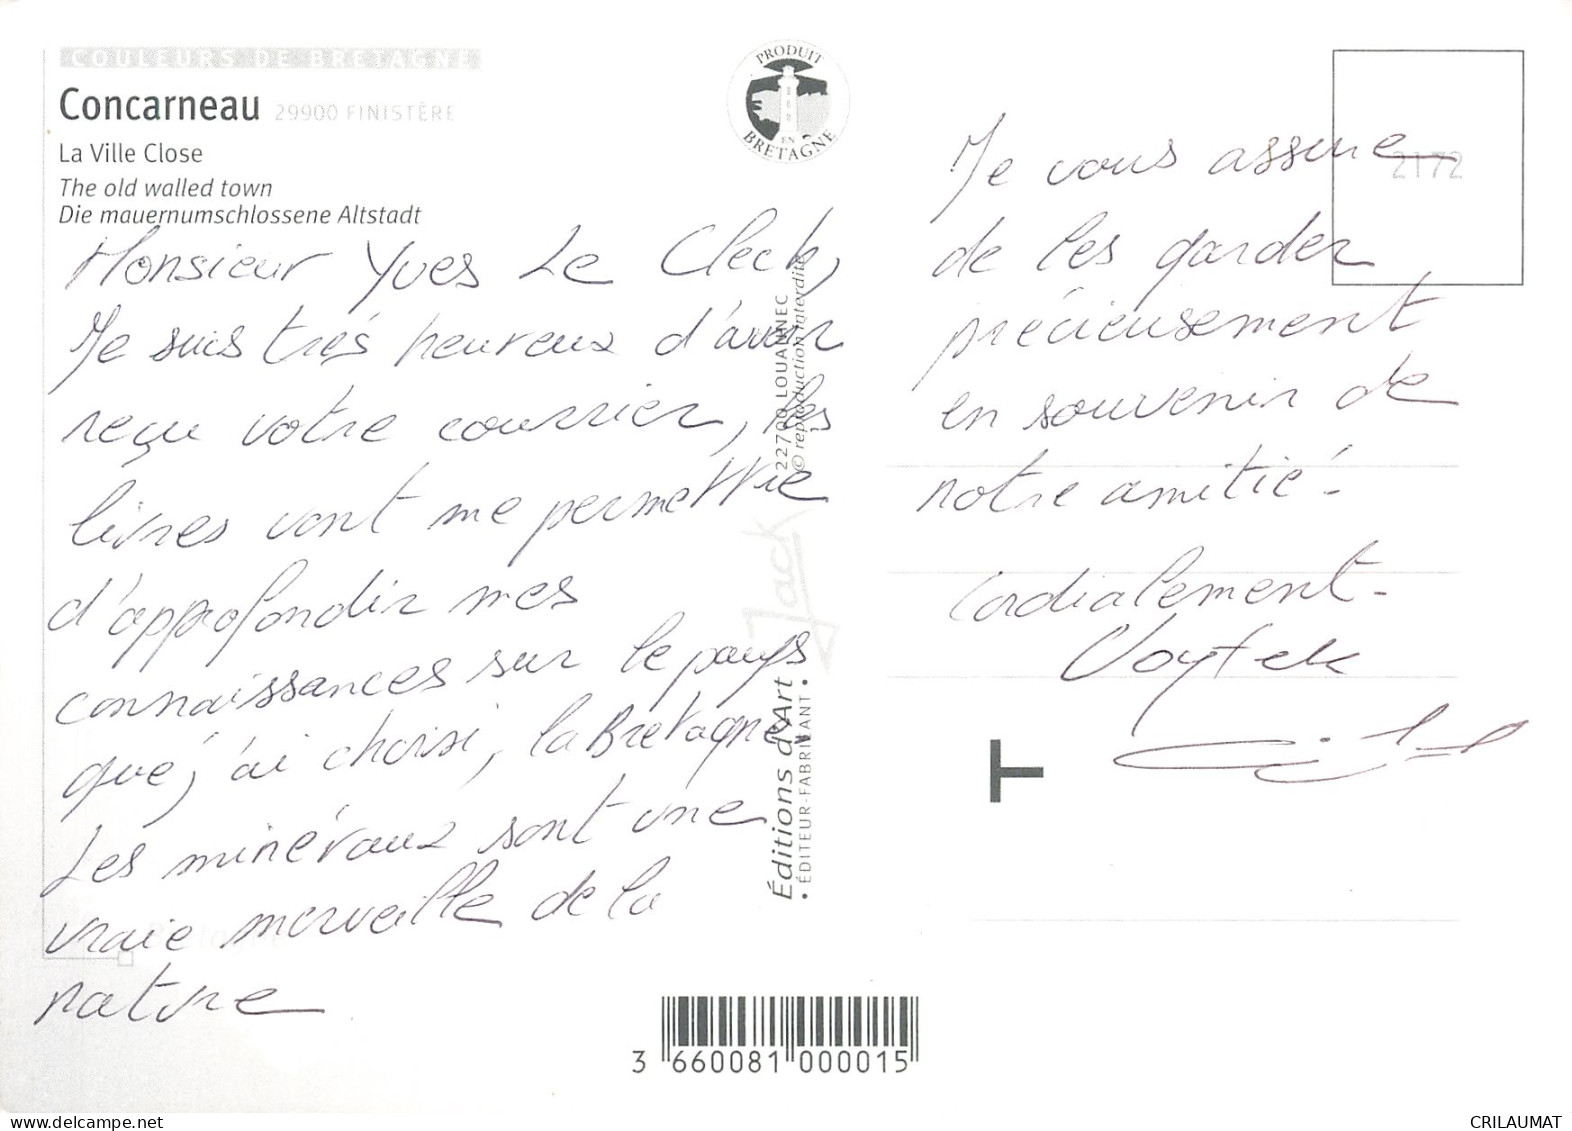 COULEURS DE BRETAGNE
Concarneau 29900 FINISTÈRE
La Ville Close
The old walled town
Die mauernumschlossene Altstadt
PRODUIT
EN
BRETAGNE
2172
Monsieur Yves Le Cleck,
Je suis très heureux d'avoir
reçu votre courrier, les
livres vont me permettre
d'approfondir mes
connaissances sur le pays
que j'ai choisi, la Bretagne,
Les minéraux sont une
vraie merveille de la
nature
Je vous assure
de les garder
précieusement
en souvenir de
notre amitié.
Cordialement.
Voytek
22700 LOUANNEC
© reproduction interdite
Jack
Éditions d'Art
• ÉDITEUR-FABRICANT •
T
3 660081 000015
CRILAUMAT